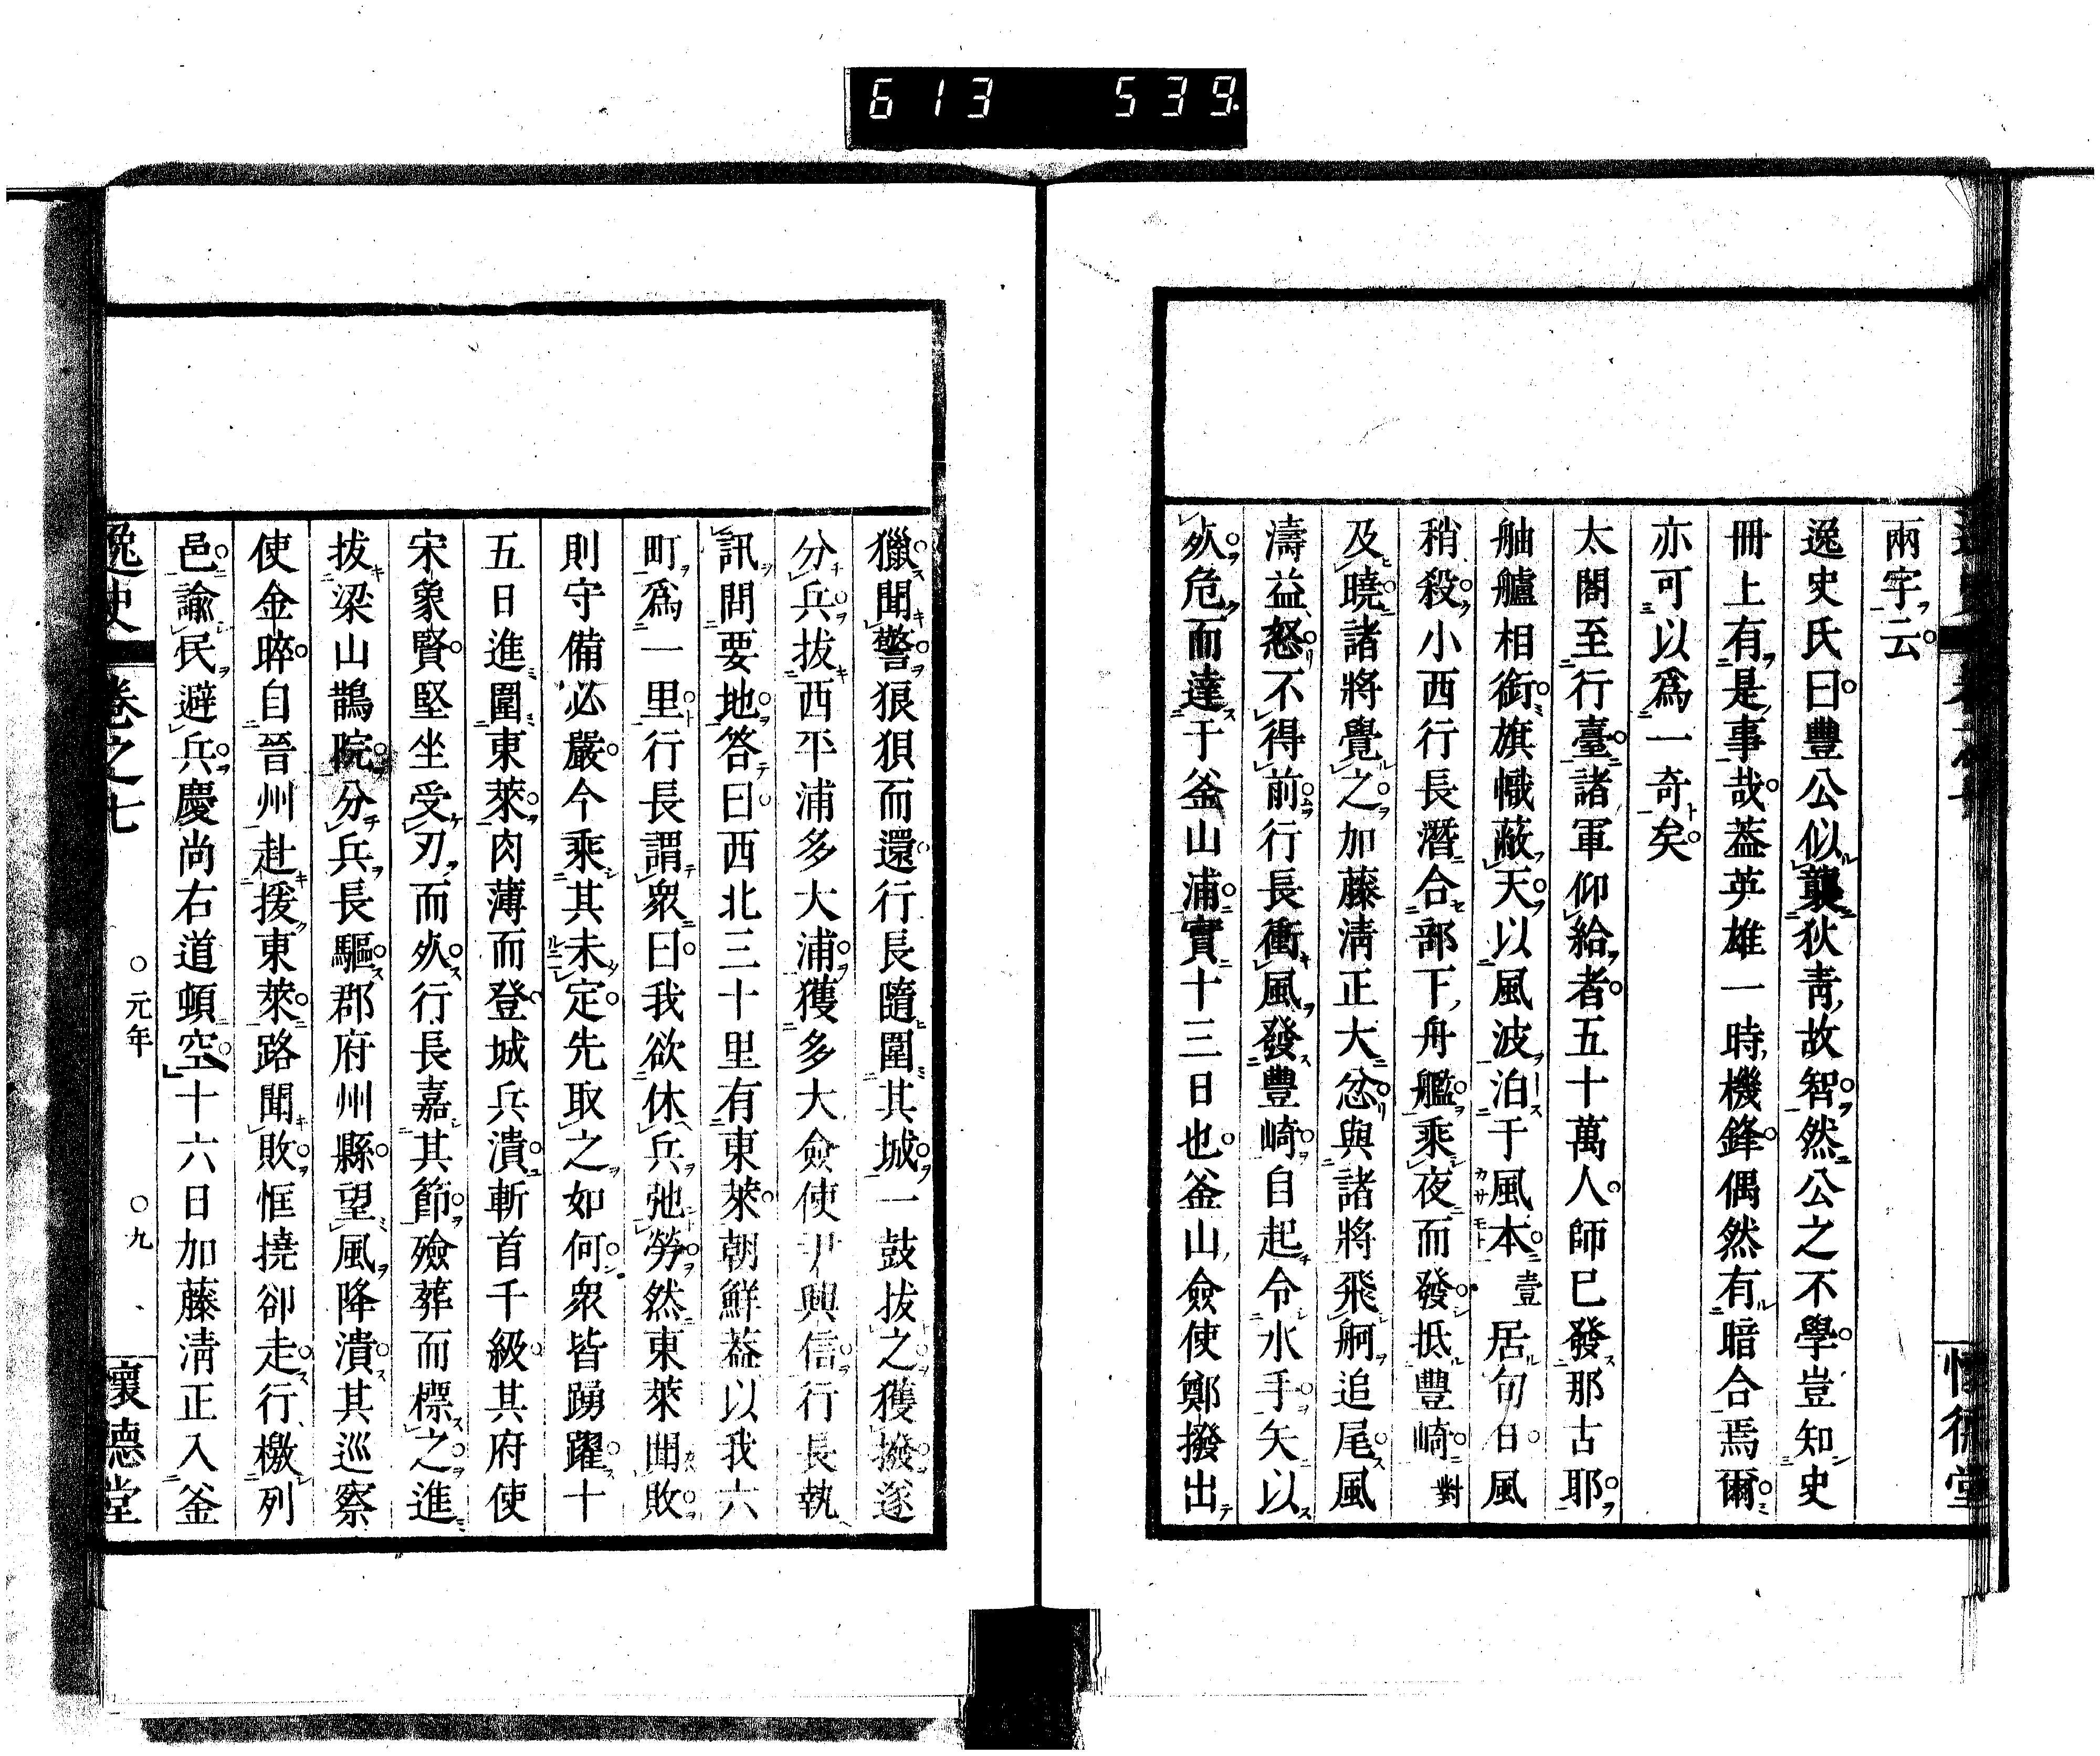 613 539
兩字云
逸史氏曰豐公似襲狄青故智然公之不學豈知史
冊上有是事哉葢英雄一時機鋒偶然有暗合焉爾
亦可以爲一奇矣
太閤至行臺諸軍仰給者五十萬人師已發那古耶
舳艫相銜旗幟蔽天以風波泊于風本壹居旬日風
稍殺小西行長潛合部下舟艦乘夜而發抵豐崎對
及曉諸將覺之加藤淸正大忿與諸將飛舸追尾風
濤益怒不得前行長衝風發豐崎自起令水手矢以
死危而達于釜山浦實十三日也釜山僉使鄭撥出
獵聞警狼狽而還行長隨圍其城一鼓拔之獲撥遂
分兵拔西平浦多大浦獲多大僉使尹興信行長執
訊問要地答曰西北三十里有東萊朝鮮葢以我六
町爲一里行長謂衆曰我欲休兵弛勞然東萊聞敗
則守備必嚴今乘其未定先取之如何衆皆踴躍十
五日進圍東萊肉薄而登城兵潰斬首千級其府使
宋象賢堅坐受刃而死行長嘉其節殮葬而標之進
拔梁山鵲院分兵長驅郡府州縣望風降潰其巡察
使金晬自晉州赴援東萊路聞敗恇撓卻走行檄列
邑諭民避兵慶尚右道頓空十六日加藤淸正入釜
逸史 卷之七 ○元年 ○九 懷德堂